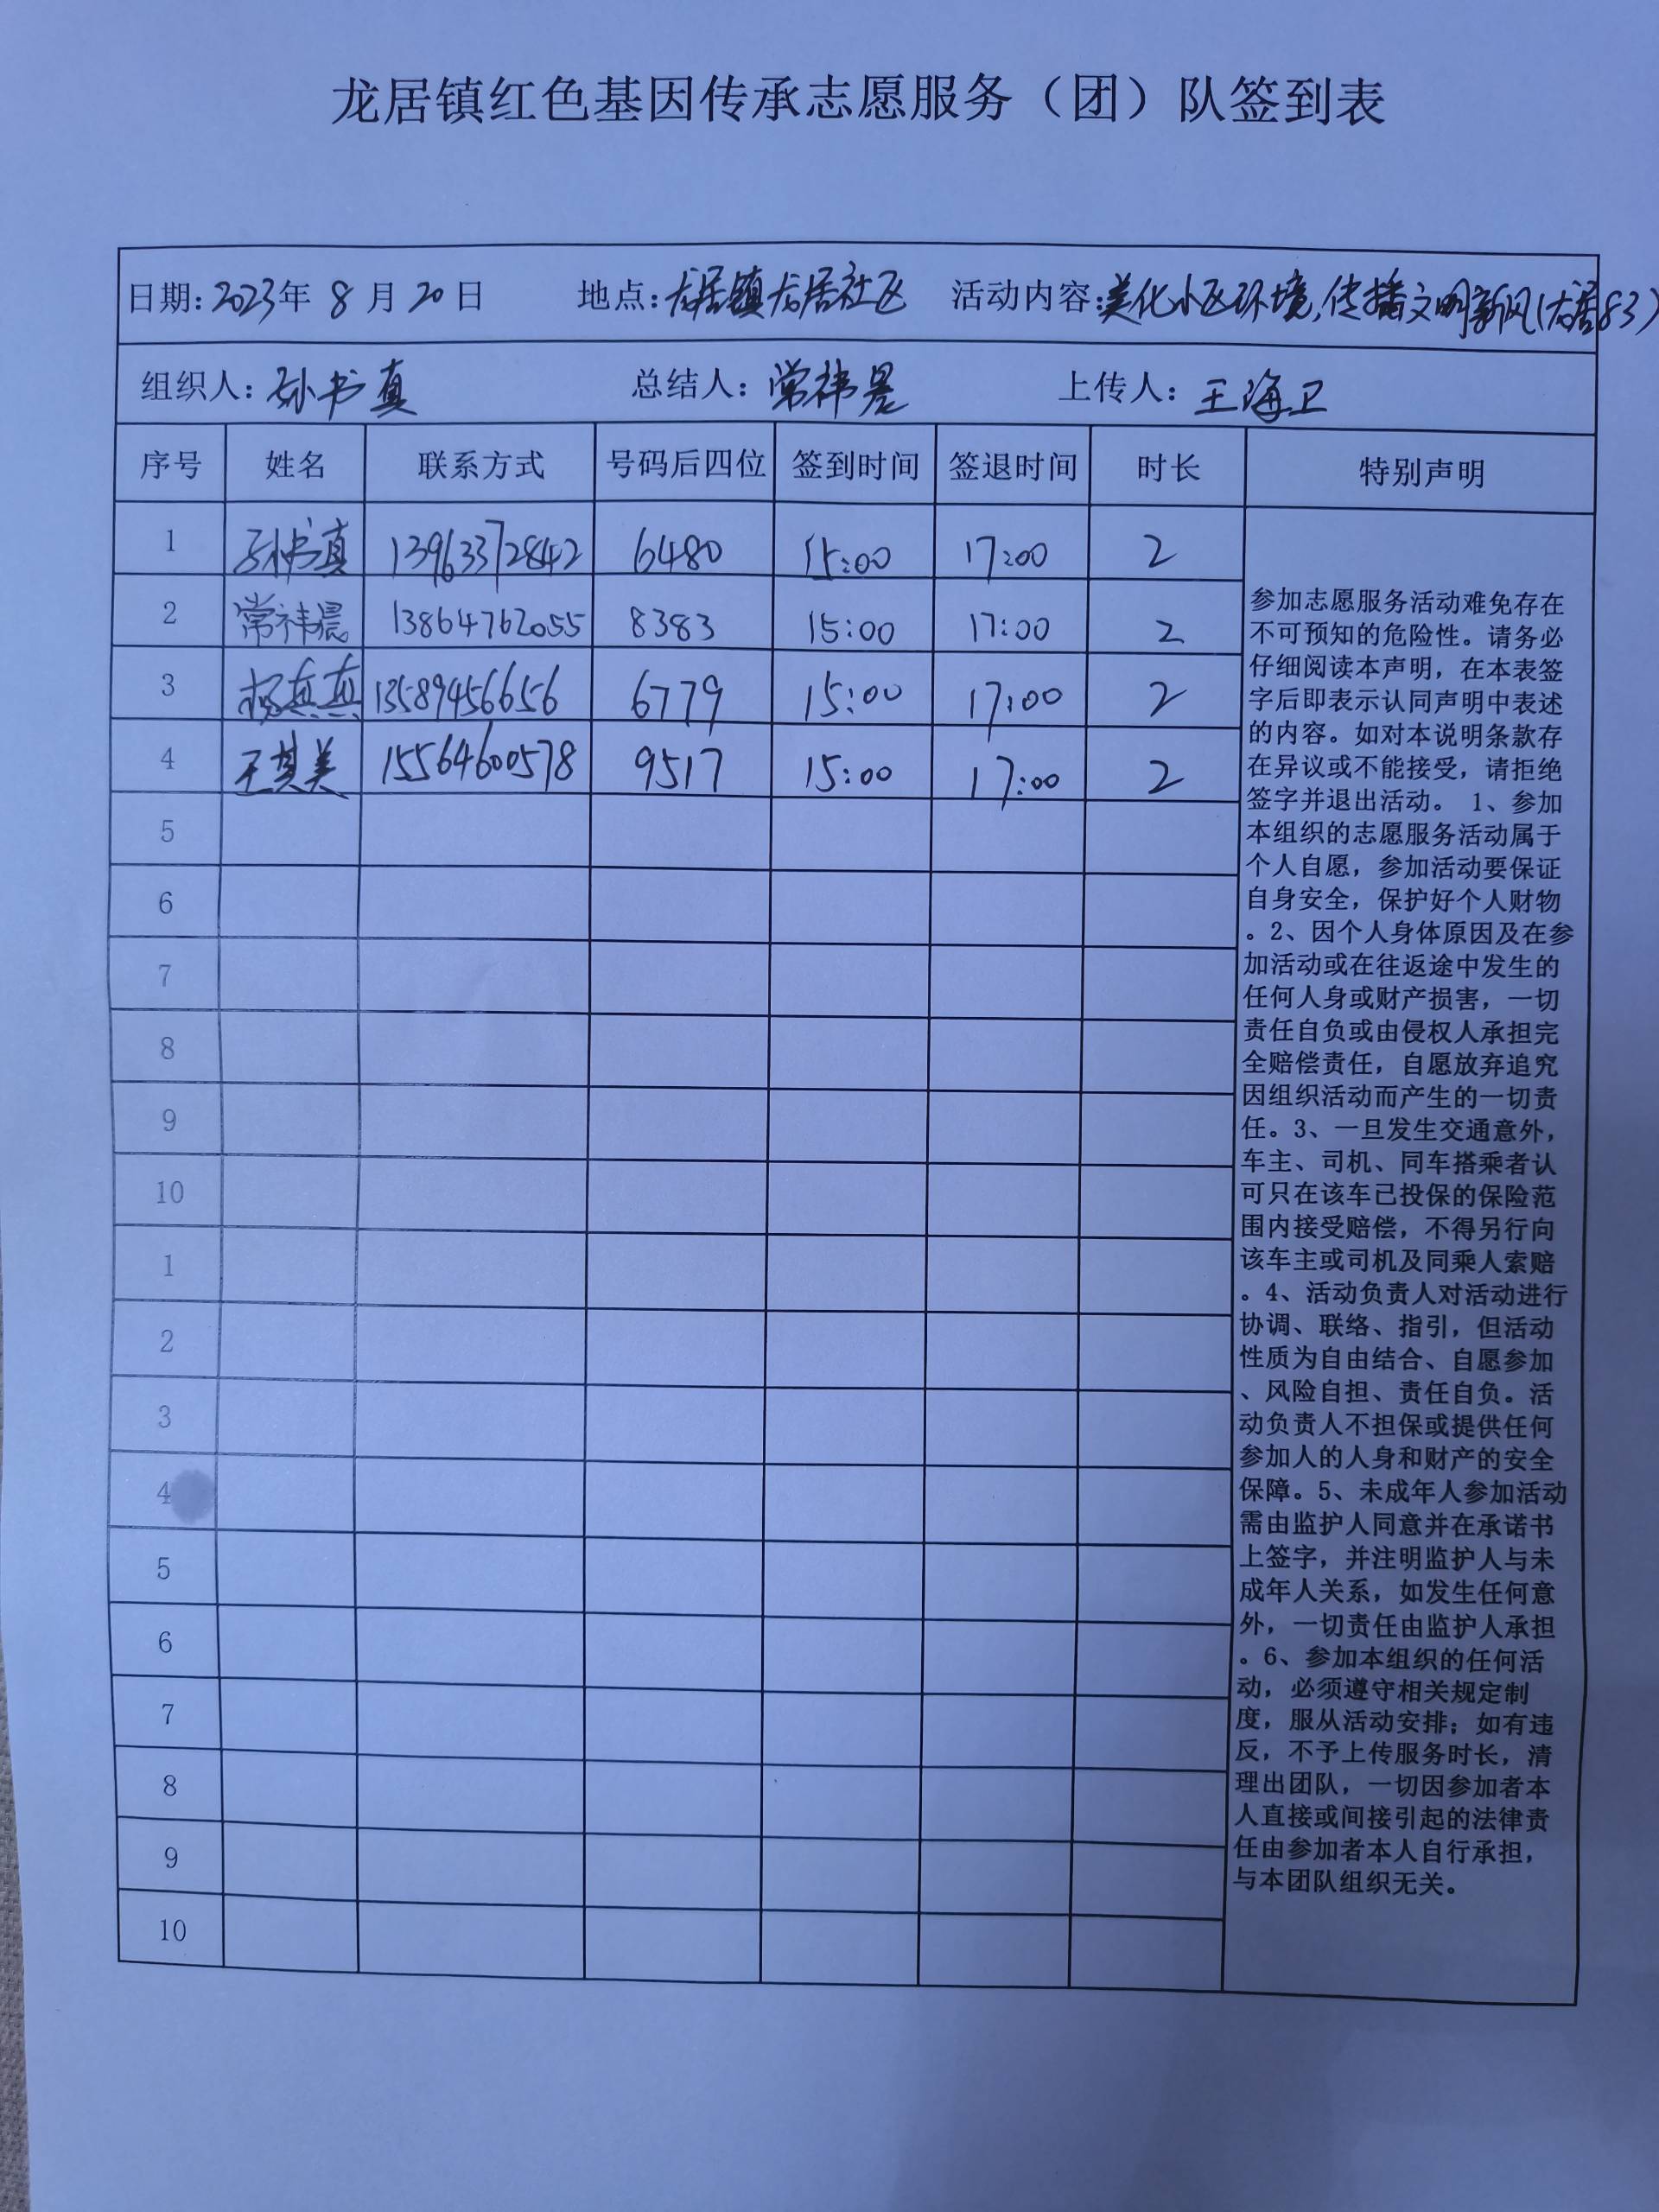 龙居镇红色基因传承志愿服务（团）队签到表
日期：2023年 8 月 20 日 地点：龙居镇龙居社区 活动内容：美化小区环境，传播文明新风（龙居83）
组织人：孙书真 总结人：常祎晨 上传人：王海卫
序号 姓名 联系方式 号码后四位 签到时间 签退时间 时长 特别声明
1 孙书真 13963372842 6480 15:00 17:00 2
2 常祎晨 13864762055 8383 15:00 17:00 2
3 杨真真 13589456656 6779 15:00 17:00 2
4 王其美 15564600578 9517 15:00 17:00 2
5
6
7
8
9
10
1
2
3
4
5
6
7
8
9
10
参加志愿服务活动难免存在
不可预知的危险性。请务必
仔细阅读本声明，在本表签
字后即表示认同声明中表述
的内容。如对本说明条款存
在异议或不能接受，请拒绝
签字并退出活动。 1、参加
本组织的志愿服务活动属于
个人自愿，参加活动要保证
自身安全，保护好个人财物
。2、因个人身体原因及在参
加活动或在往返途中发生的
任何人身或财产损害，一切
责任自负或由侵权人承担完
全赔偿责任，自愿放弃追究
因组织活动而产生的一切责
任。3、一旦发生交通意外，
车主、司机、同车搭乘者认
可只在该车已投保的保险范
围内接受赔偿，不得另行向
该车主或司机及同乘人索赔
。4、活动负责人对活动进行
协调、联络、指引，但活动
性质为自由结合、自愿参加
、风险自担、责任自负。活
动负责人不担保或提供任何
参加人的人身和财产的安全
保障。5、未成年人参加活动
需由监护人同意并在承诺书
上签字，并注明监护人与未
成年人关系，如发生任何意
外，一切责任由监护人承担
。6、参加本组织的任何活
动，必须遵守相关规定制
度，服从活动安排；如有违
反，不予上传服务时长，清
理出团队，一切因参加者本
人直接或间接引起的法律责
任由参加者本人自行承担，
与本团队组织无关。